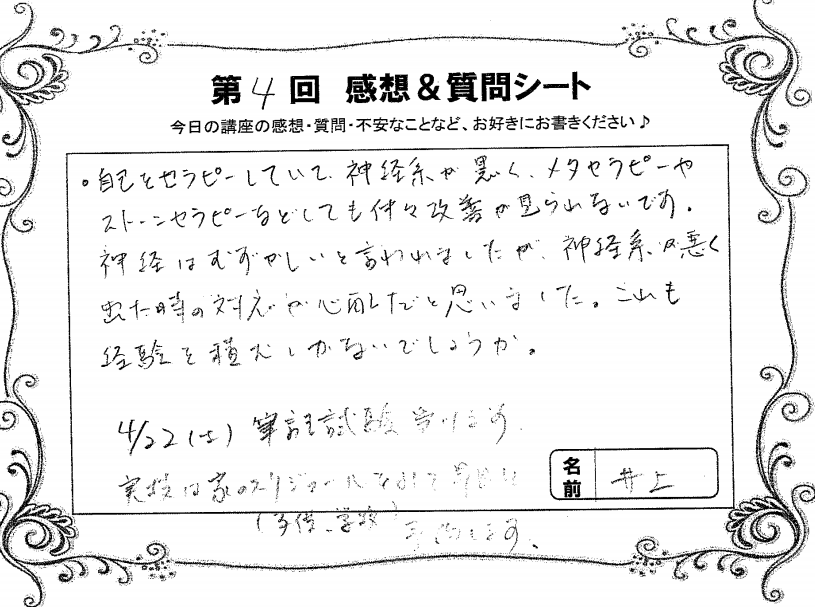 第4回 感想&質問シート
今日の講座の感想・質問・不安なことなど、お好きにお書きください♪
・自己をセラピーしていて、神経系が悪く、メタセラピーや
ストーンセラピーなどしても仲々改善が見られないです。
神経はむずかしいと言われましたが、神経系が悪く
出た時の対応が心配だと思いました。これも
経験を積むしかないでしょうか。
4/22(土) 筆記試験受けます。
実技は家のスケジュールをみて
(子供、学校)
名前 井上